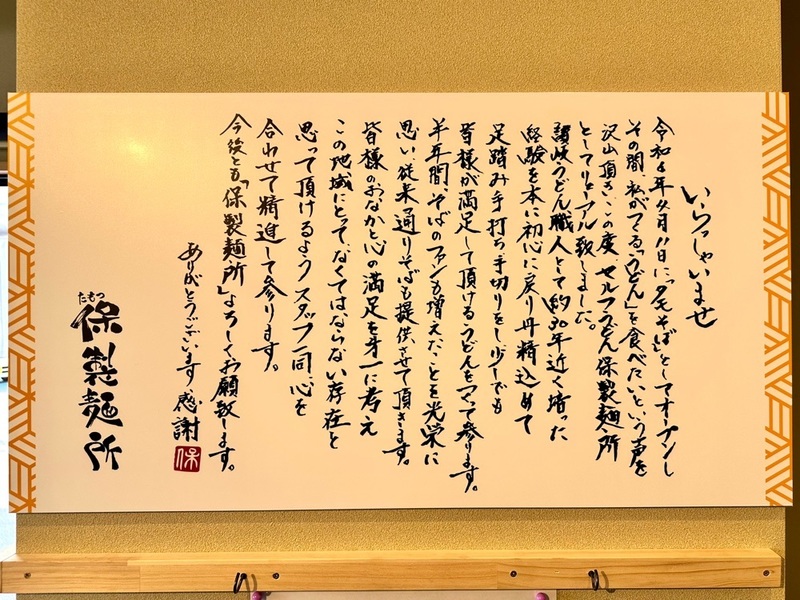 いらっしゃいませ
令和4年4月11日に「タモそば」としてオープンし
その間、私がつくる「うどん」を食べたいという声を
沢山頂き、この度セルフうどん保製麺所
としてリニューアル致しました。
讃岐うどん職人として約30年近く培った
経験を本に初心に戻り丹精込めて
足踏み手打ち手切りをし少しでも
皆様が満足して頂けるうどんをつくって参ります。
半年間、そばのファンも増えたことを光栄に
思い、従来通りそばも提供させて頂きます。
皆様のおなかと心の満足を第一に考え
この地域にとって、なくてはならない存在と
思って頂けるようスタッフ一同、心を
合わせて精進して参ります。
今後とも「保製麺所」よろしくお願い致します。
ありがとうございます 感謝
保
たもつ
保製麺所